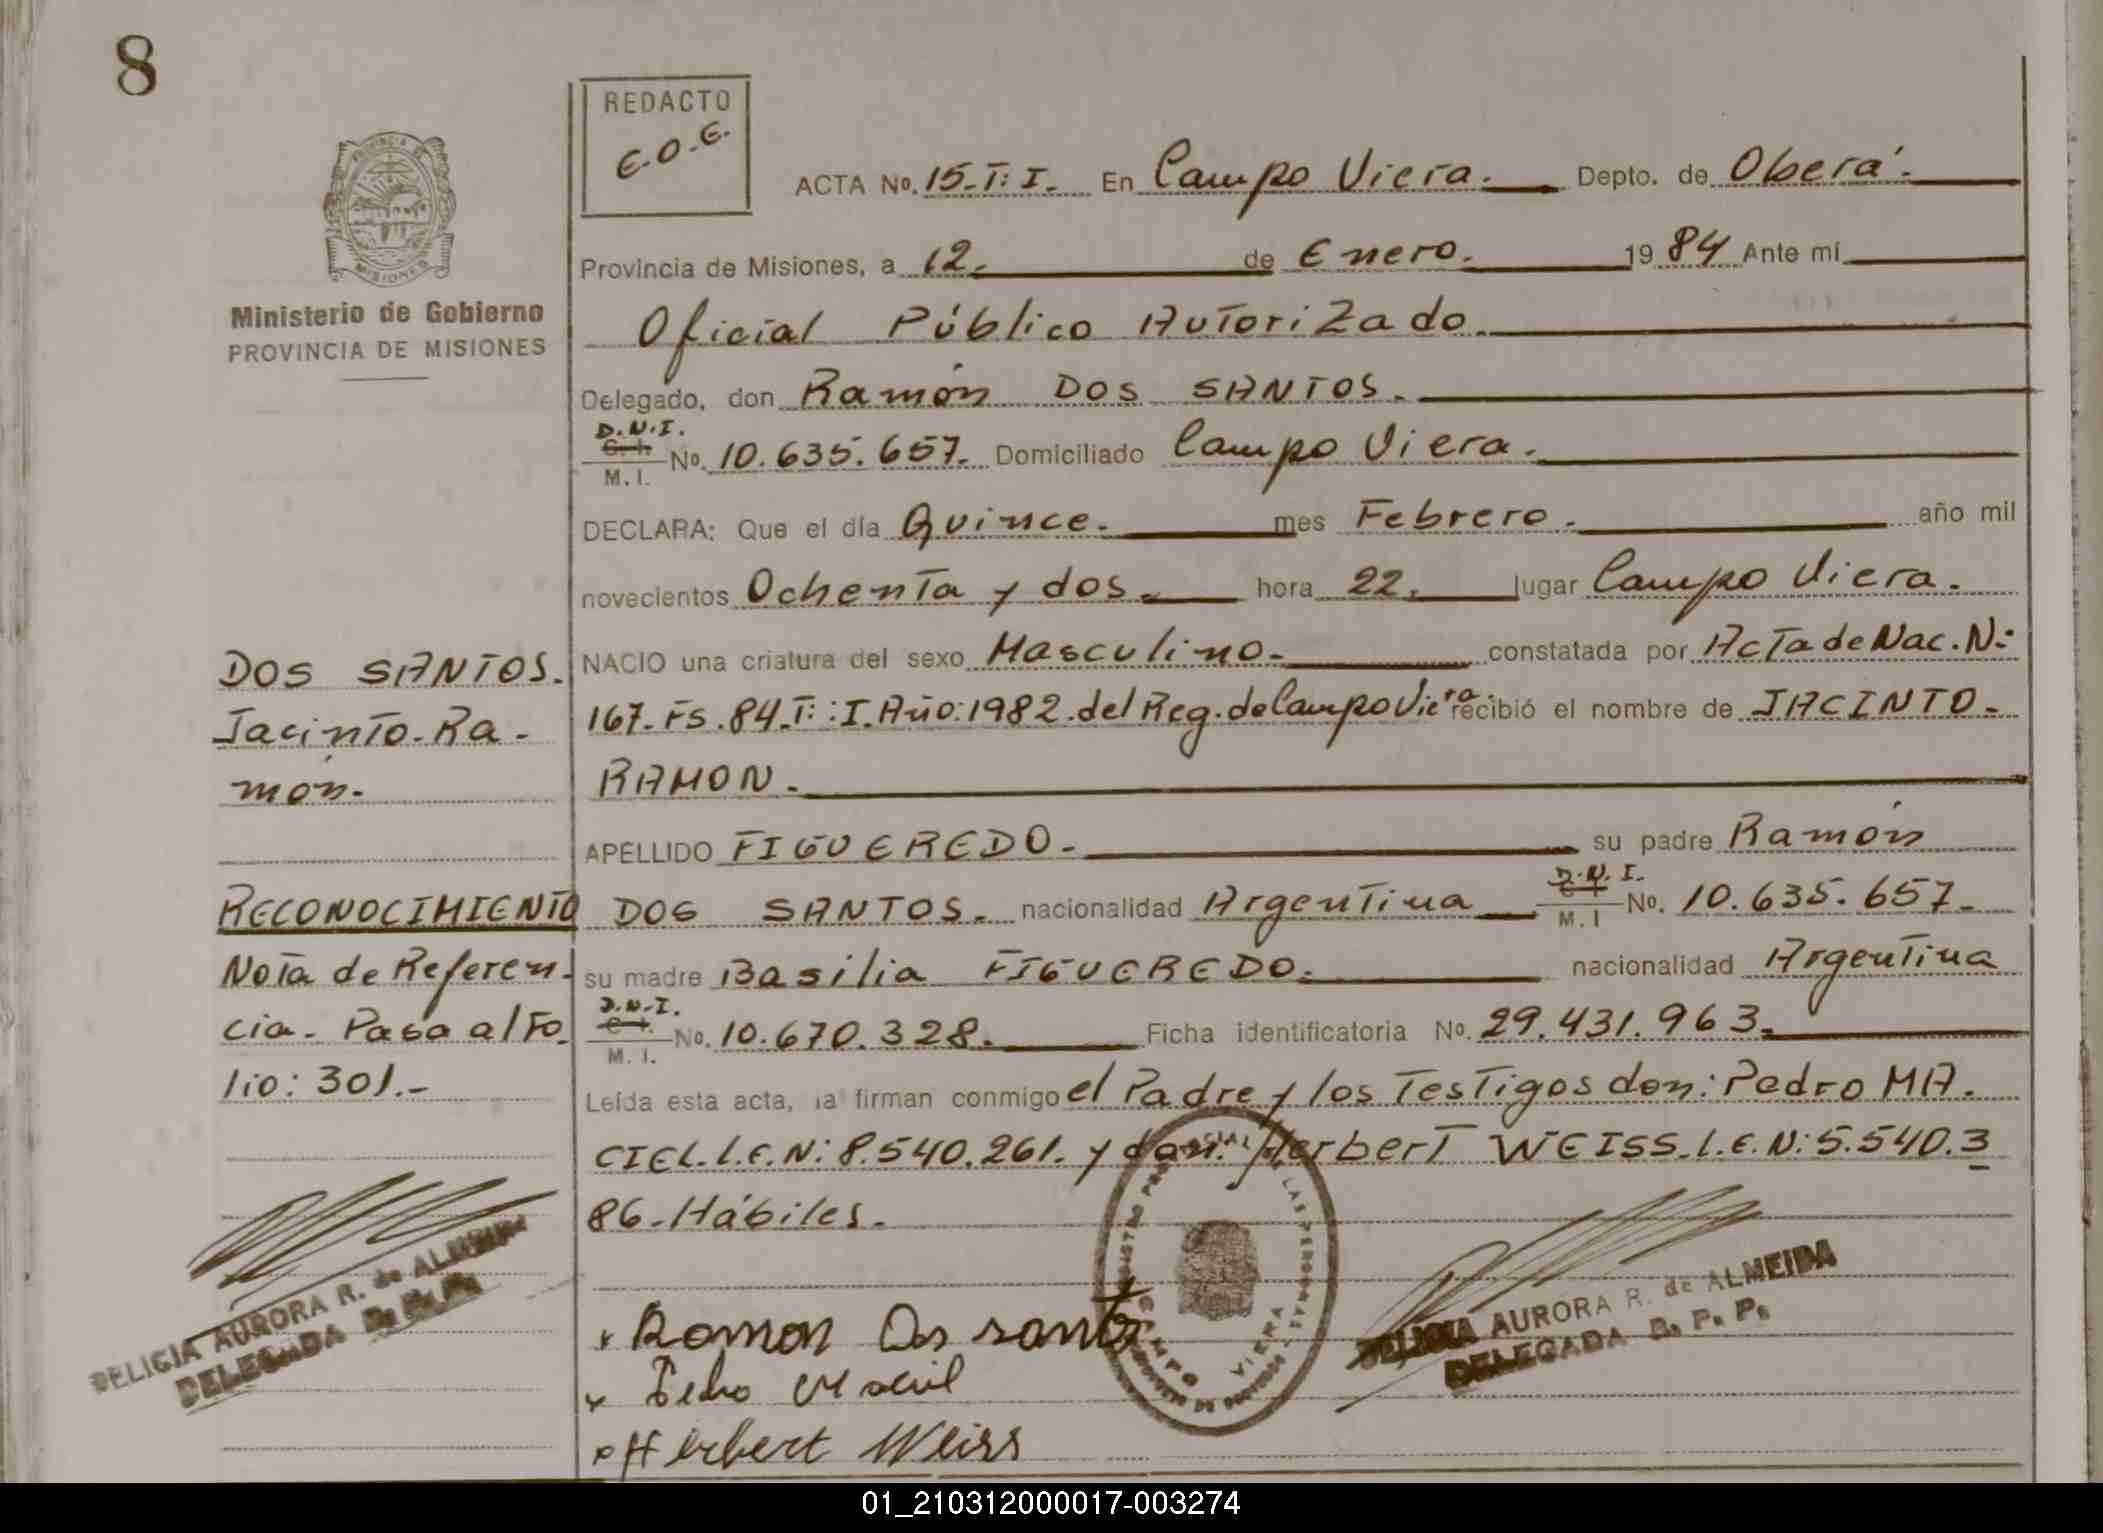 8
REDACTO
E.O.E.
PROVINCIA DE
MISIONES
Ministerio de Gobierno
PROVINCIA DE MISIONES
ACTA No. 15-T: I. En Campo Viera. Depto. de Oberá.
Provincia de Misiones, a 12. de Enero. 19 84 Ante mí
Oficial Público Autorizado
Delegado, don Ramón DOS SANTOS.
D.N.I.
C. I.
M. I. No. 10.635.657. Domiciliado Campo Viera.
DECLARA: Que el día Quince. mes Febrero. año mil
novecientos Ochenta y dos. hora 22. lugar Campo Viera.
NACIO una criatura del sexo Masculino. constatada por Acta de Nac. N:
167-Fs.84-T: I. Año:1982.del Reg.de Campo Viera. recibió el nombre de JACINTO-
RAMON.
APELLIDO FIGUEREDO. su padre Ramón
DOS SANTOS. nacionalidad Argentina D.N.I. C I M. I No. 10.635.657.
su madre Basilia FIGUEREDO. nacionalidad Argentina
D.N.I.
C. I.
M. I. No. 10.670.328. Ficha identificatoria No. 29.431.963.
Leída esta acta, la firman conmigo el Padre y los Testigos don: Pedro MA.
CIEL.L.E.N:8.540.261. y don: Herbert WEISS.L.E.N:5.540.3
86-Hábiles.
DOS SANTOS.
Jacinto-Ra-
món.
RECONOCIMIENTO
Nota de Referen-
cia- Pasa al Fo-
lio: 301.-
DELICIA AURORA R. de ALMEIDA
DELEGADA R. P. P.
CAMPO VIERA
Ramon Dos santos
Pedro Maciel
Herbert Weiss
DELICIA AURORA R. de ALMEIDA
DELEGADA R. P. P.
01_210312000017-003274